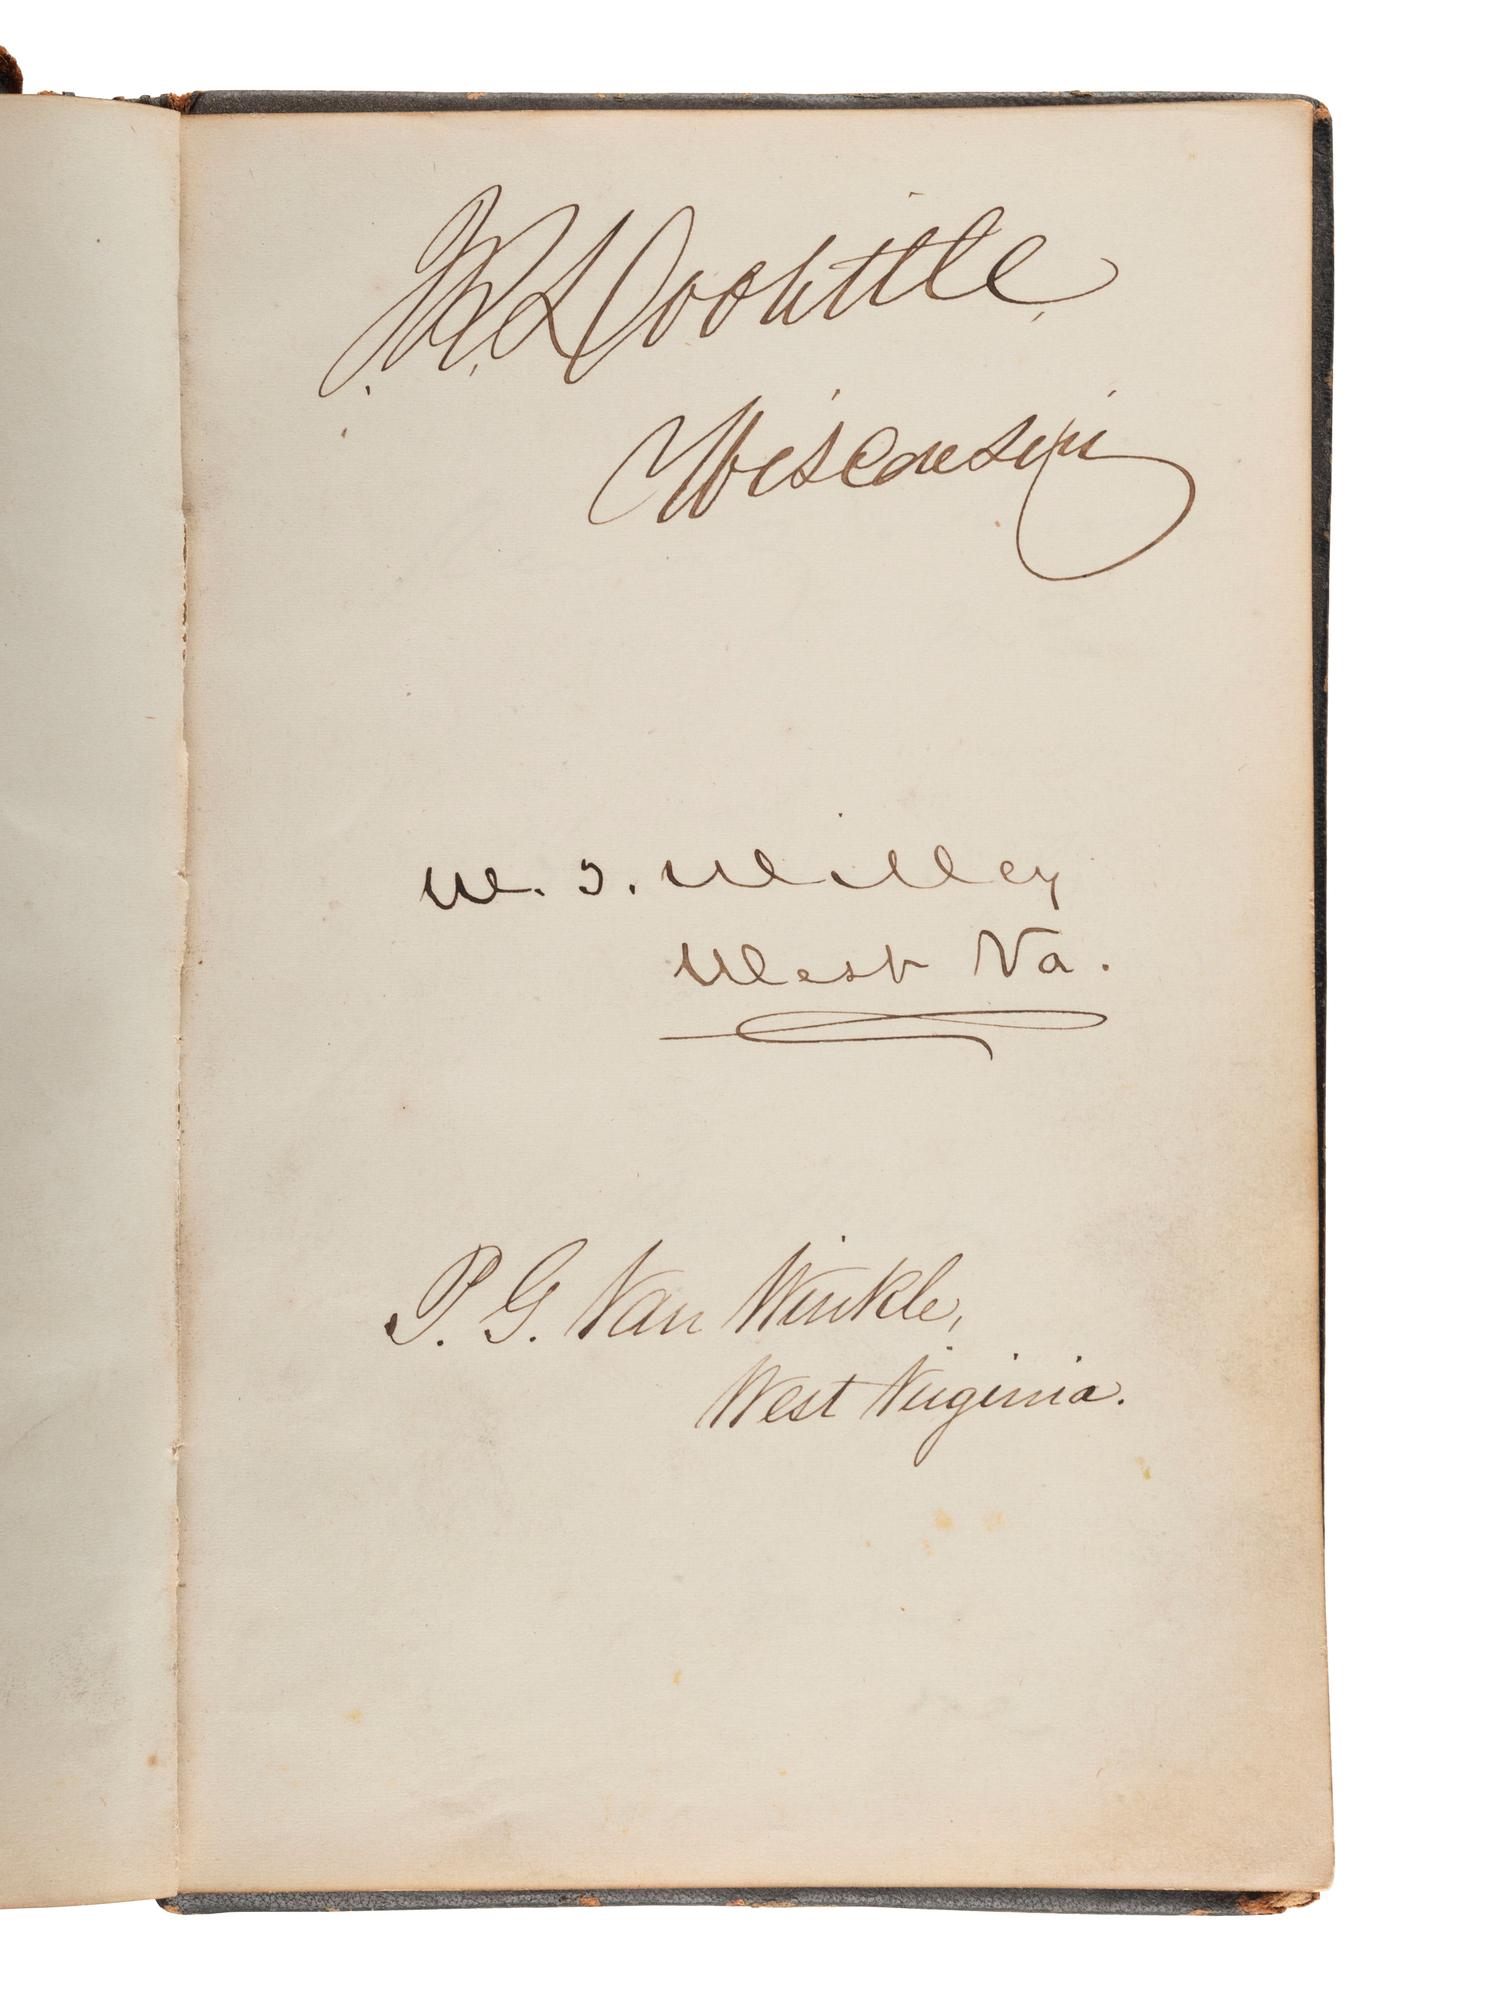 J. R. Doolittle,
Wisconsin
W. T. Willey
West Va.
P. G. Van Winkle,
West Virginia.